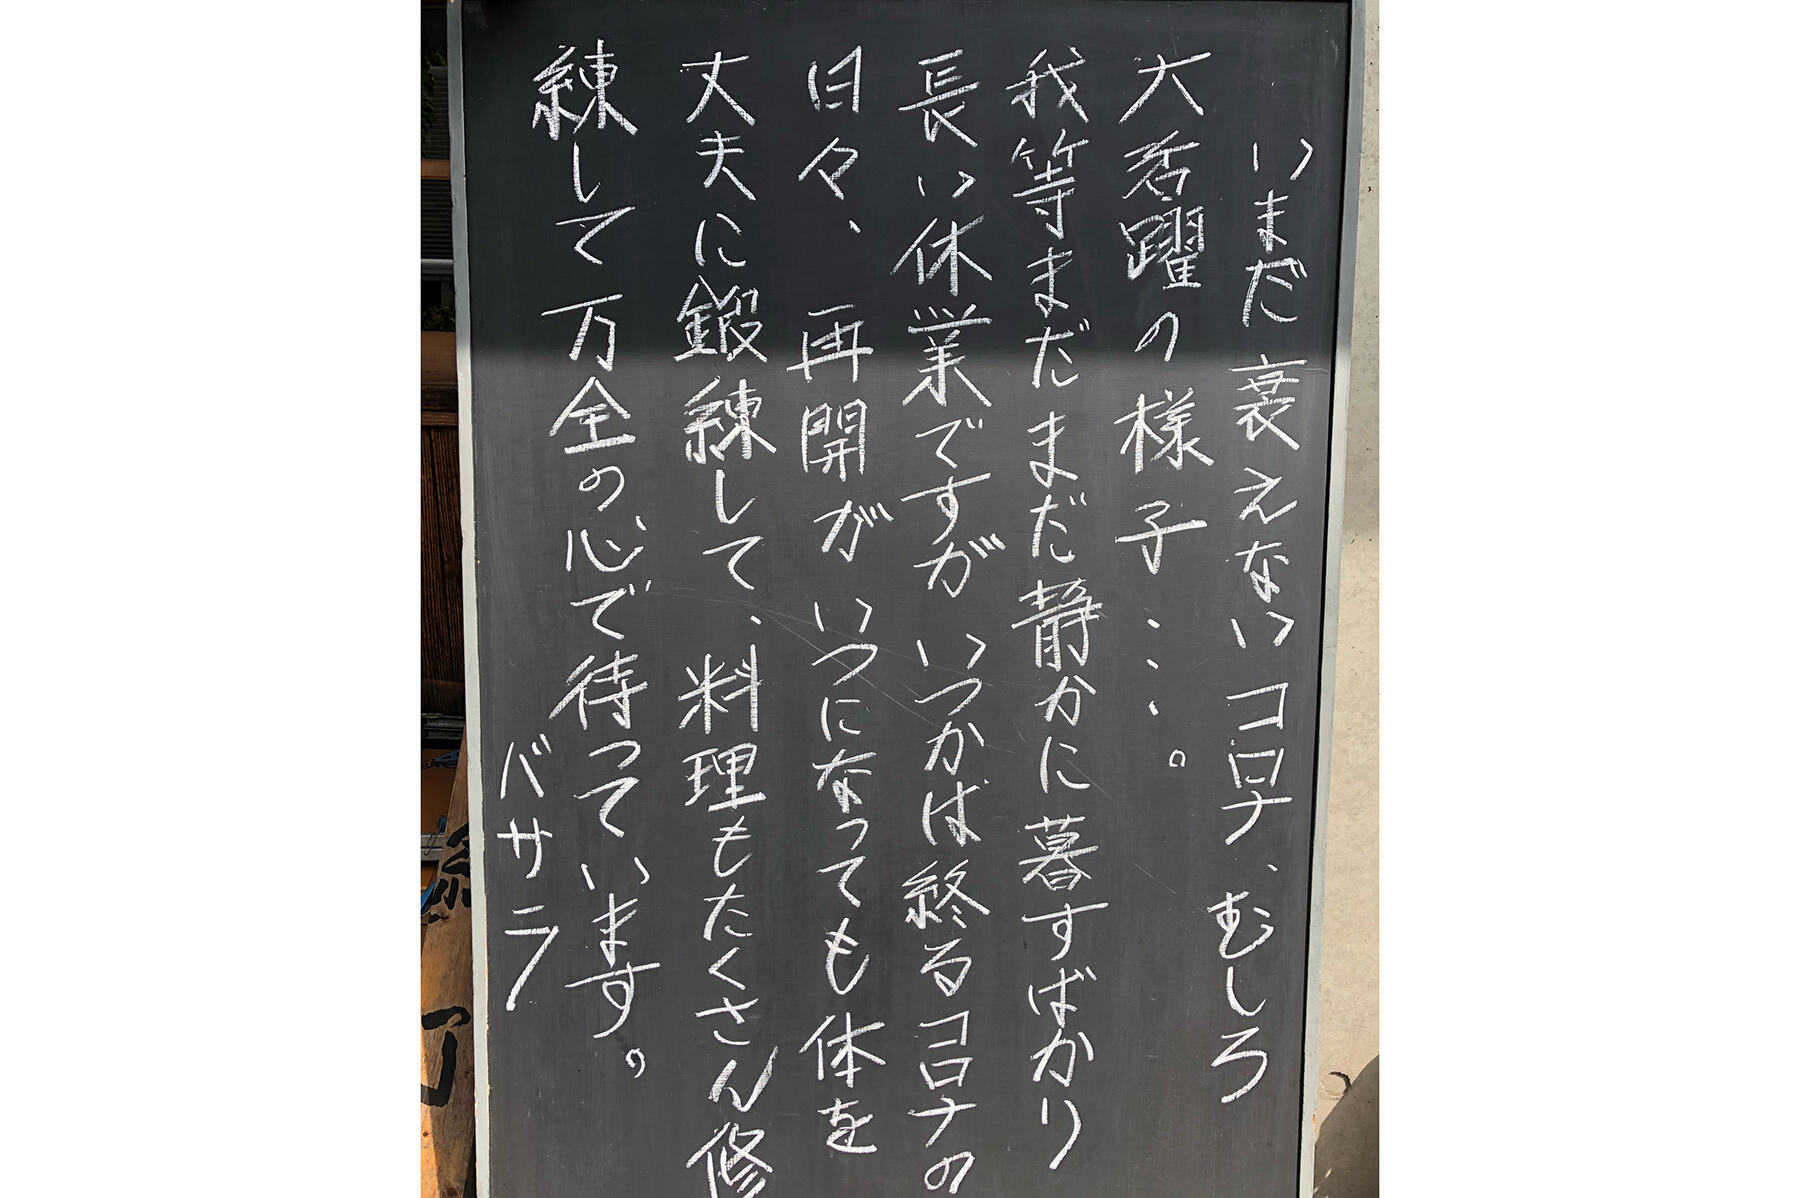 いまだ衰えないコロナ、むしろ
大香躍の様子……。
我等まだまだ静かに暮すばかり
長い休業ですが いつかは終るコロナの
日々、再開が いつになっても体を
丈夫に鍛練して、料理もたくさん修
練して万全の心で待っています。
バサラ